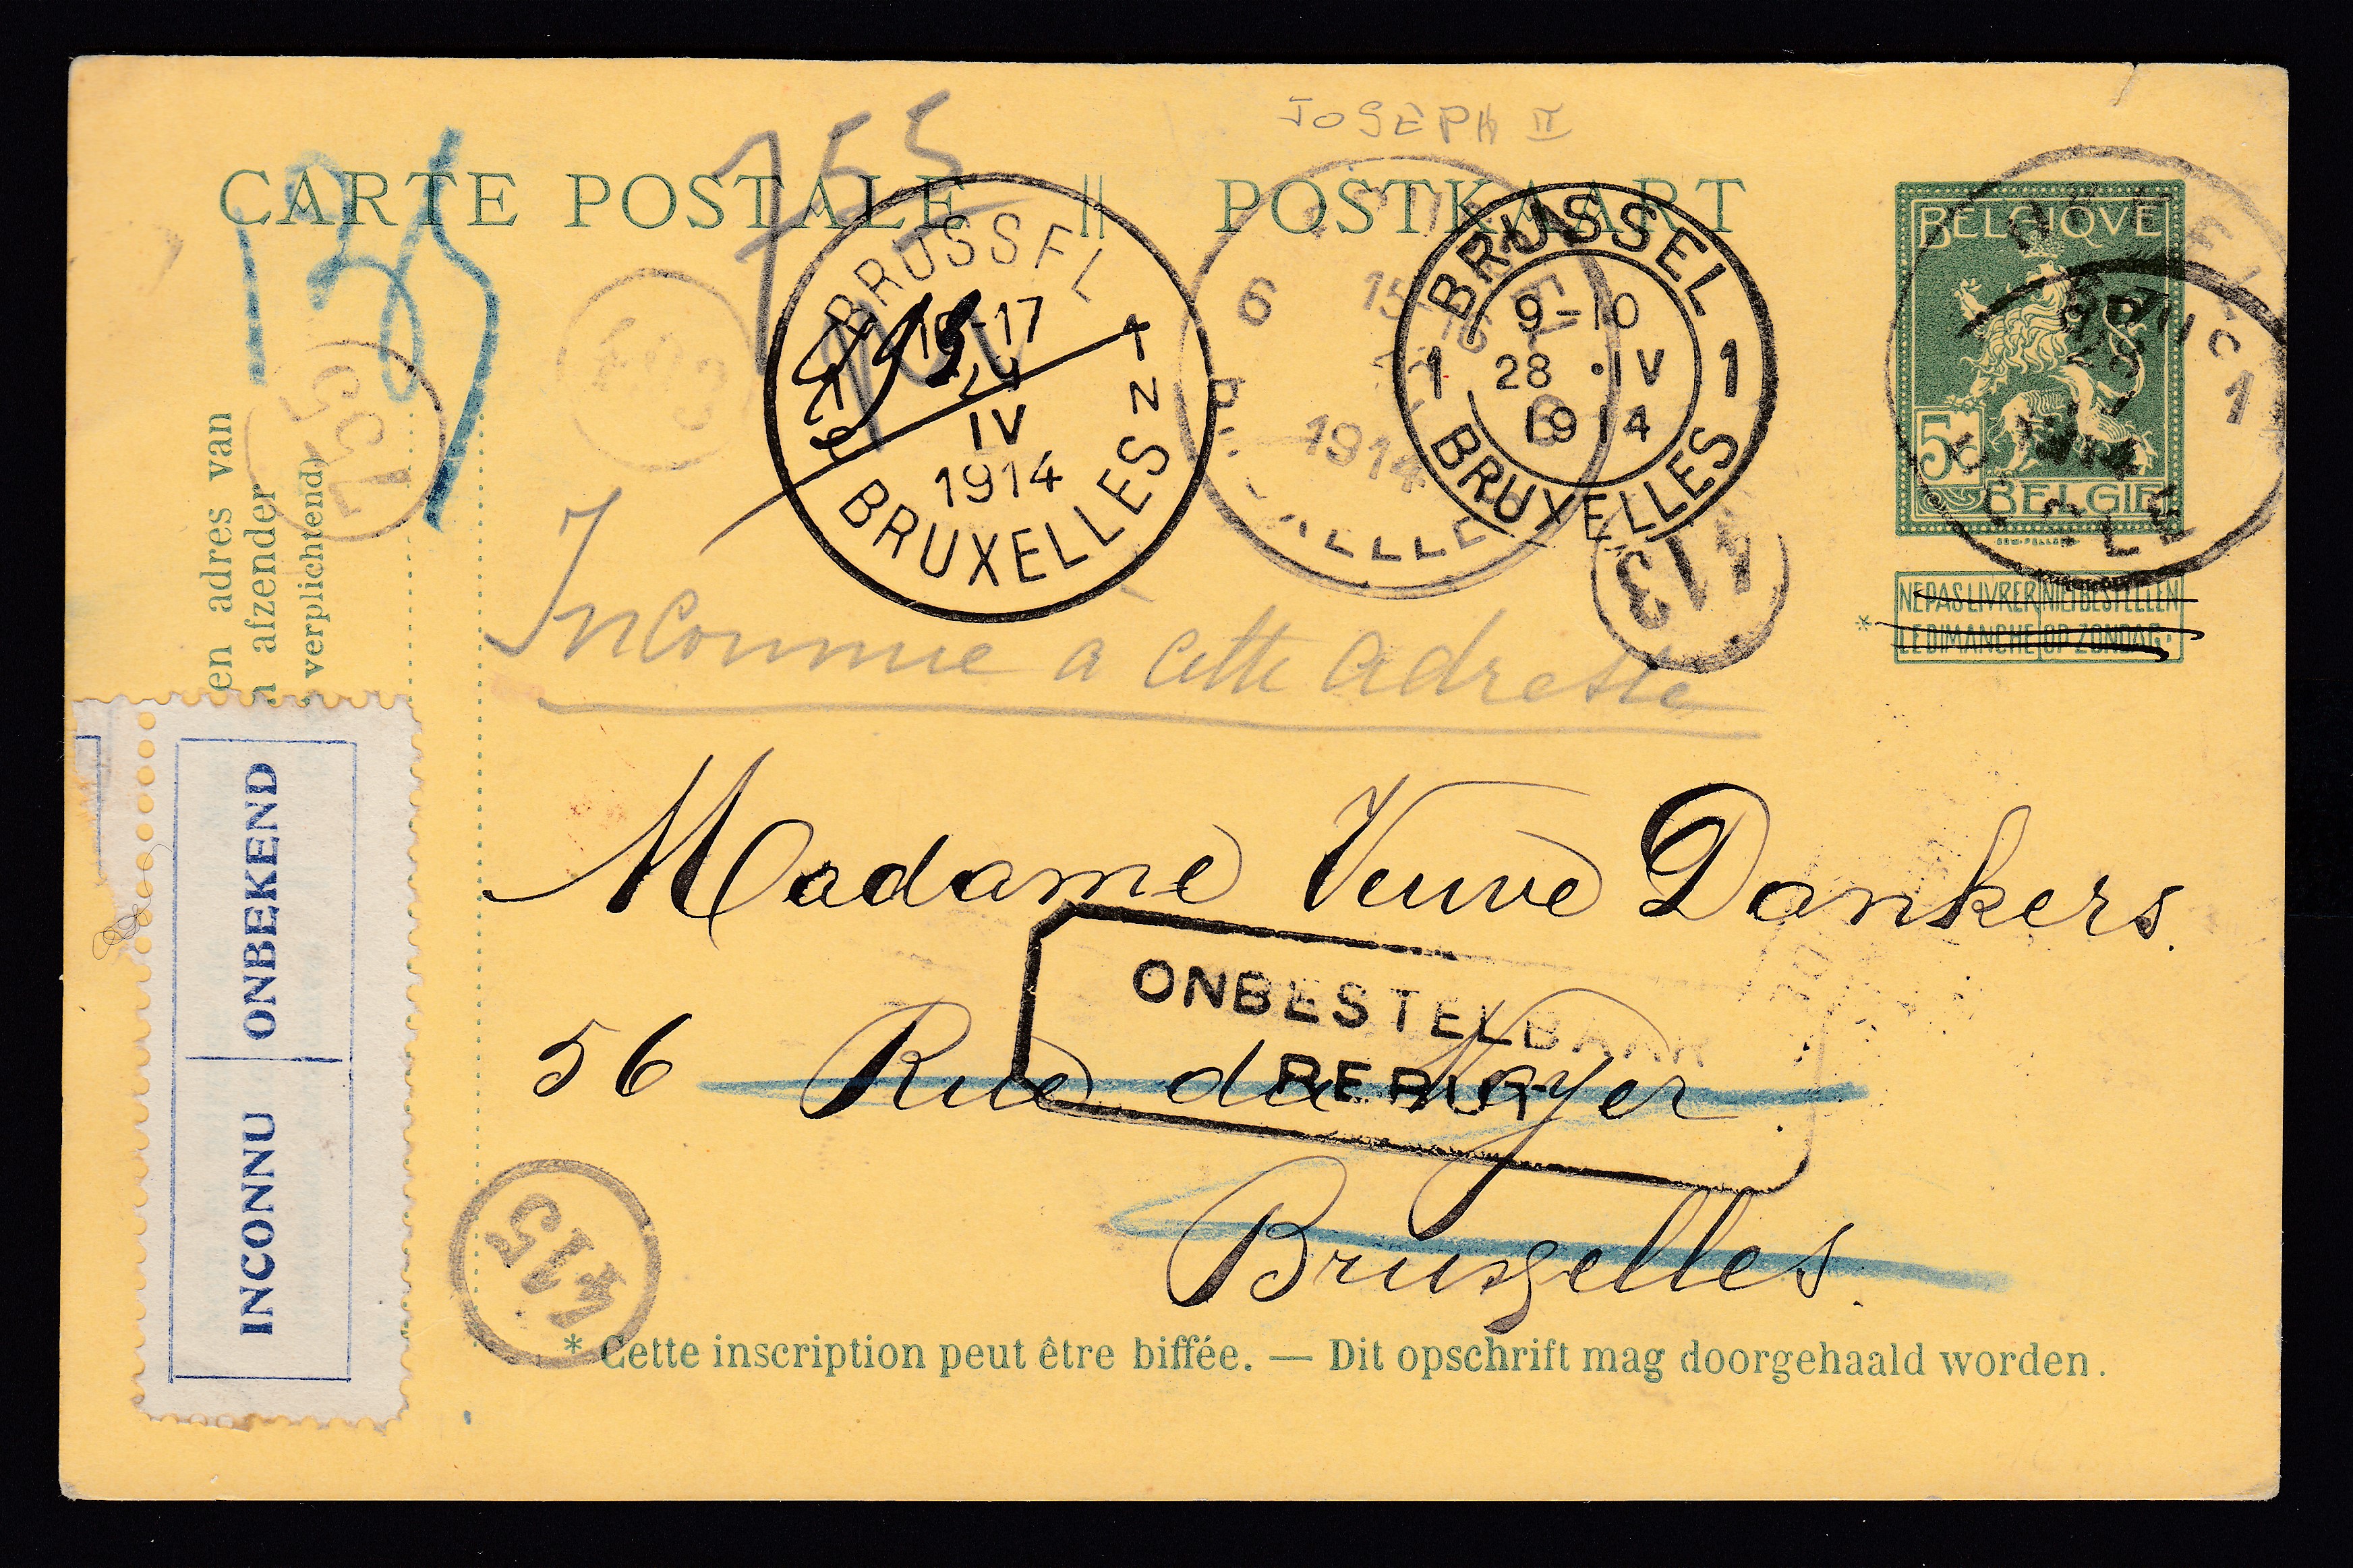 JOSEPH II
755
CARTE POSTALE || POSTKAART
BELGIQVE
5
BELGIE
BRUSSEL
16-17
24
IV
1914
BRUXELLES
6
15-16
1914
BRUSSEL
9-10
1 28 ·IV 1
1914
BRUXELLES
1
UCCLE
en adres van
afzender
verplichtend)
413
NE PAS LIVRER NIET BESTELLEN
* LE DIMANCHE OP ZONDAG.
Inconnue à cette adresse
INCONNU ONBEKEND
Madame Veuve Dankers.
ONBESTELBAAR
REBUT
56 Rue du Noyer.
Bruxelles.
415
* Cette inscription peut être biffée. — Dit opschrift mag doorgehaald worden.